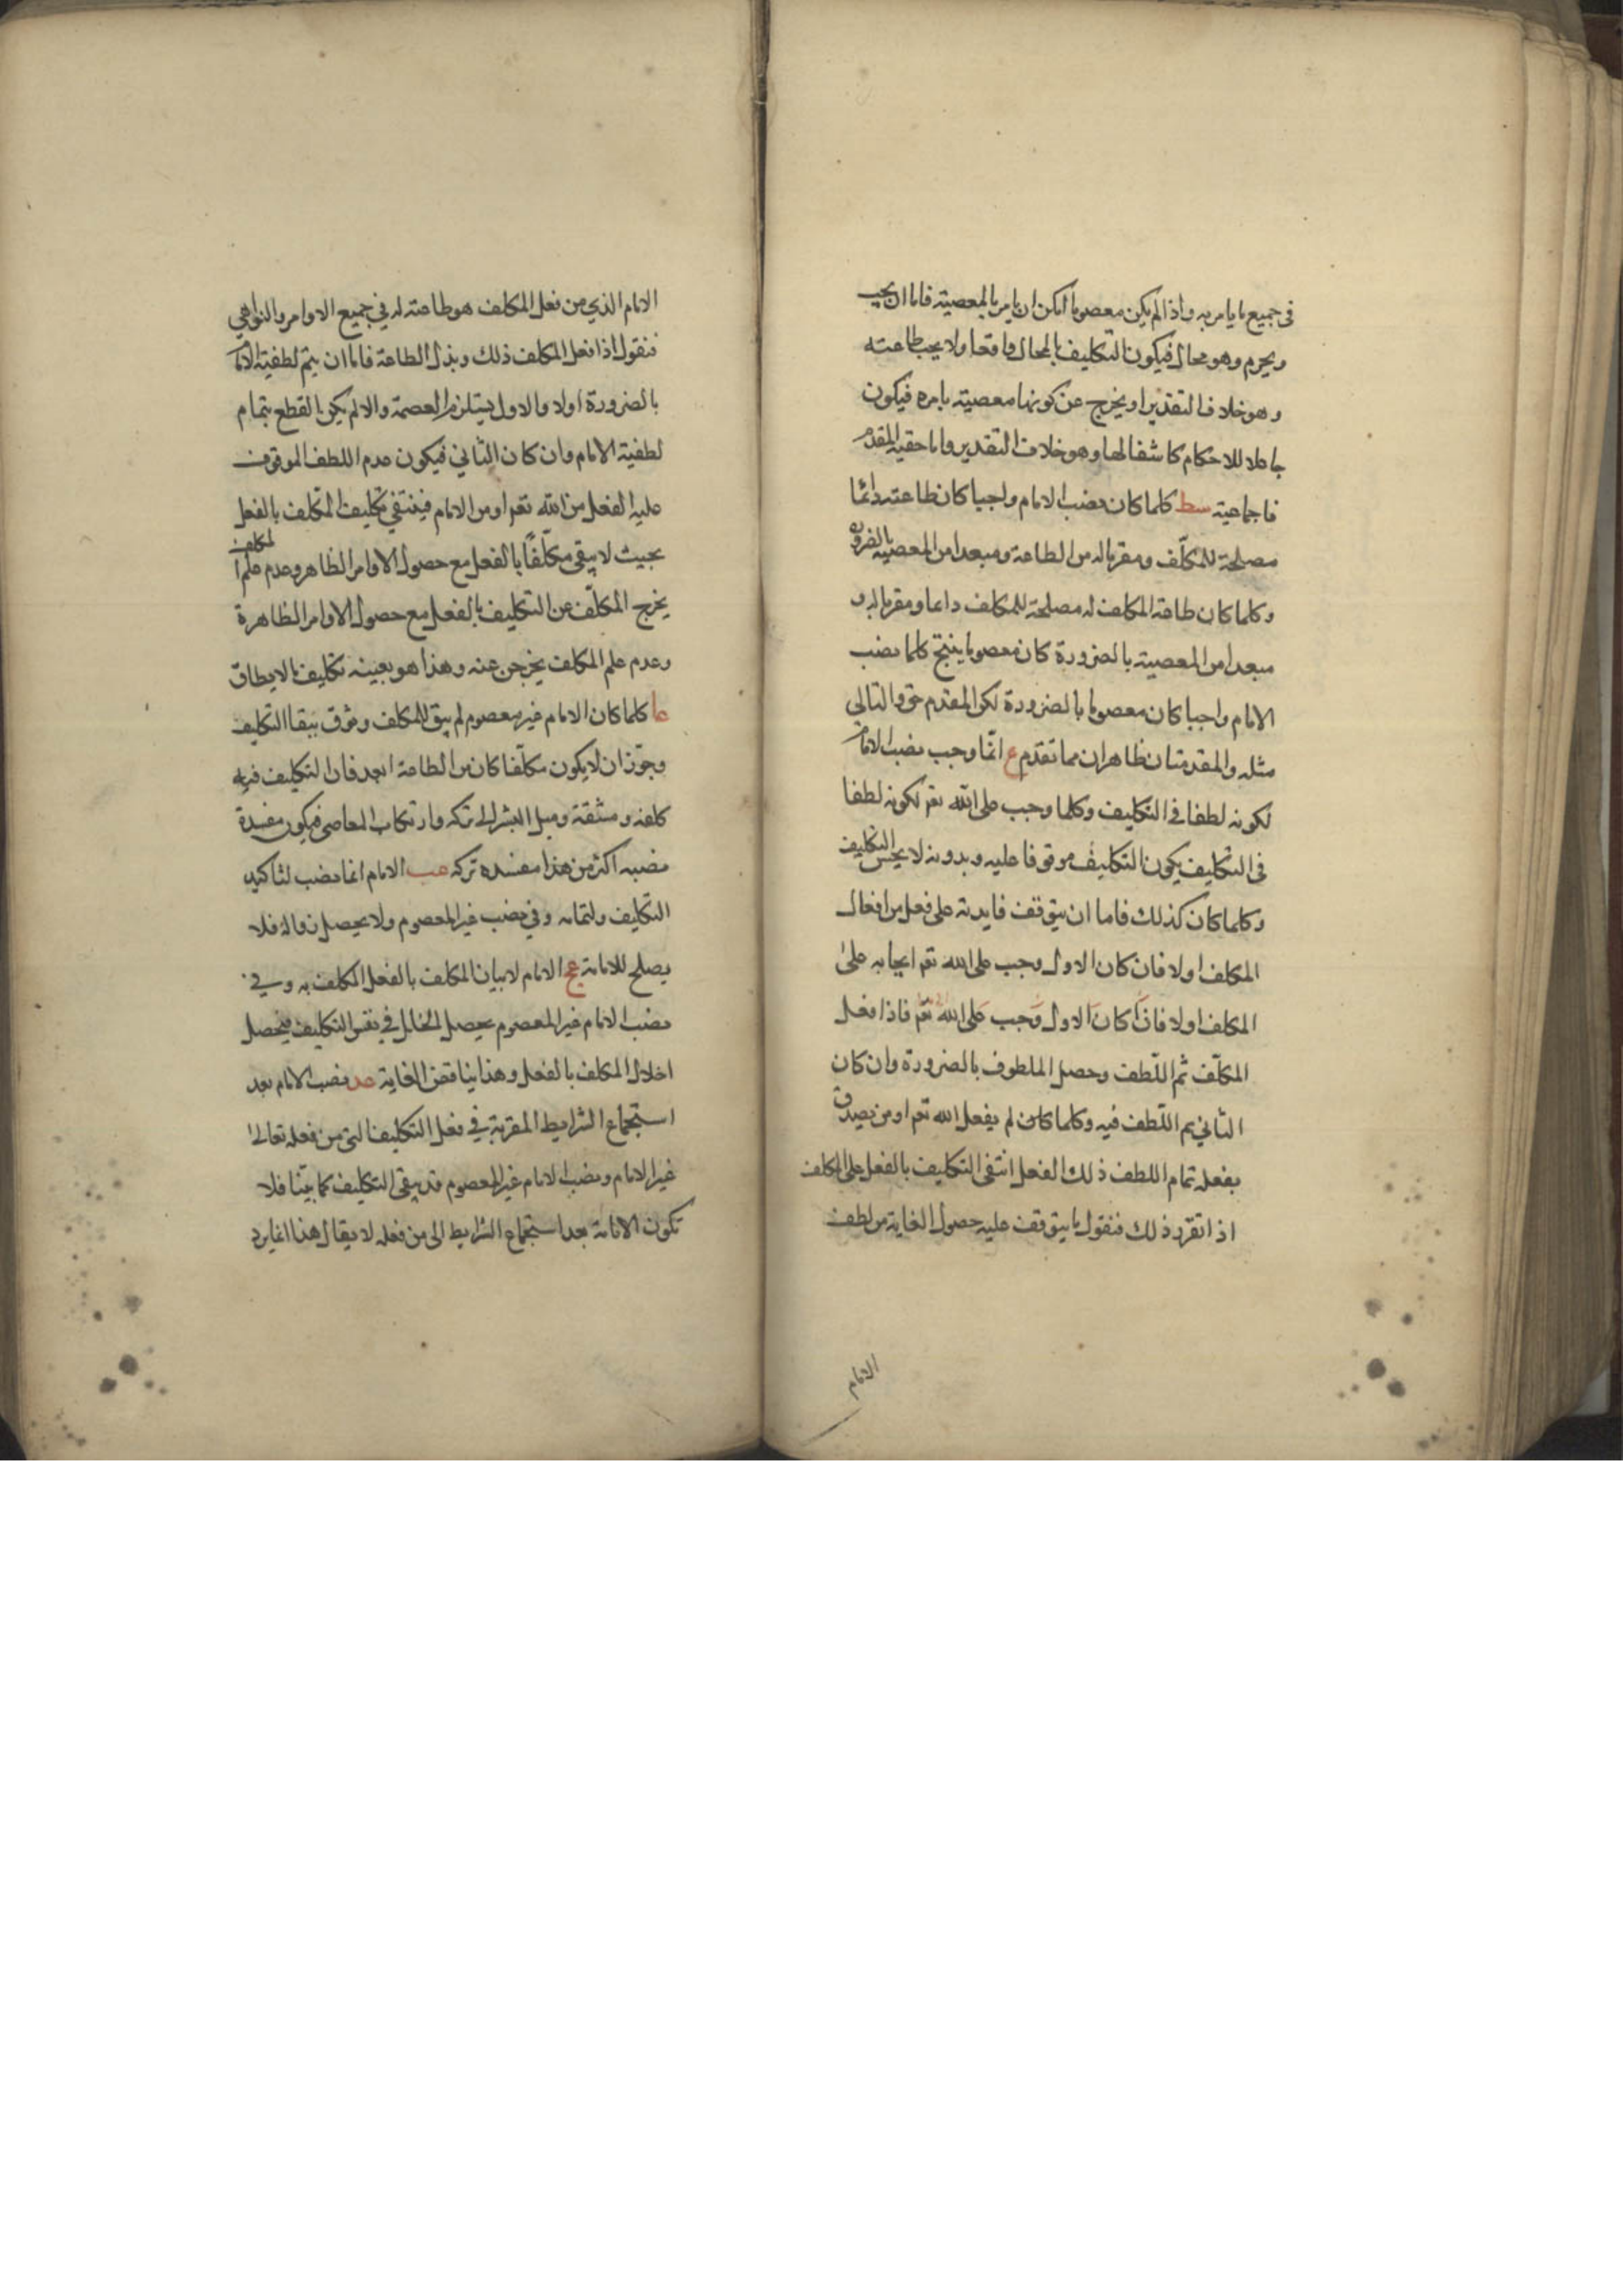 فى جميع ما يامر به واذا لم يكن معصوما امكن ان يامر بالمعصية فاما ان يجب
ويحرم وهو محال فيكون التكليف بالمحال واقعا ولا يجب طاعته
وهو خلاف التقدير او يخرج عن كونها معصية بامره فيكون
جاعلا للاحكام كاشفا لها وهو خلاف التقدير واما حقية المقدم
فاجماعية سط كلما كان نصب الامام واجبا كان طاعته دائما
مصلحة للمكلّف ومقربا له من الطاعة ومبعدا من المعصية بالضرورة
وكلما كان طاعة المكلف له مصلحة للمكلف داعما ومقربا له و
مبعدا من المعصية بالضرورة كان معصوما ينتج كلما نصب
الامام واجبا كان معصوما بالضرورة لكن المقدم حق والتالى
مثله والمقدمتان ظاهران مما تقدم ع انّما وجب نصب الامام
لكونه لطفا فى التكليف وكلما وجب على الله تعم لكونه لطفا
فى التكليف يكون التكليف موقوفا عليه وبدونه لا يحسن التكليف
وكلما كان كذلك فاما ان يتوقف فايدته على فعل من افعال
المكلف اولا فان كان الاول وجب على الله تعم ايجابه على
المكلف اولا فان كان الاول وجب على الله تعم فاذا فعل
المكلّف تم اللّطف وحصل الملطوف بالضرورة وان كان
الثاني تم اللّطف فيه وكلما كان لم يفعل الله تعم او من يصدق
بفعله تمام اللطف ذلك الفعل انتفى التكليف بالفعل على المكلف
اذا تقرّر ذلك فنقول ما يتوقف عليه حصول الغاية من لطف
الامام
الامام الذي من فعل المكلف هو طاعته له في جميع الاوامر والنواهي
فنقول اذا فعل المكلف ذلك وبذل الطاعة فاما ان يتم لطفية الامام
بالضرورة اولا والاول يستلزم العصمة والا لم يكن بالقطع بتمام
لطفية الامام وان كان الثاني فيكون عدم اللطف الموقوف
عليه الفعل من الله تعم او من الامام فينتفي تكليف المكلف بالفعل
بحيث لا يبقى مكلّفًا بالفعل مع حصول الاوامر الظاهر وعدم علم المكلف
يخرج المكلّف عن التكليف بالفعل مع حصول الاوامر الظاهرة
وعدم علم المكلف يخرجن عنه وهذا هو بعينه تكليف مالا يطاق
عا كلما كان الامام غير معصوم لم يبق للمكلف وثوق ببقا التكليف
وجوّز ان لا يكون مكلّفا كان من الطاعة ابعد فان التكليف فيه
كلفة ومشقة وميل البشر الى تركه وارتكاب المعاصى فيكون مفسدة
نصبه اكثر من هذا مفسده تركه عب الامام انما نصب لتاكيد
التكليف ولتمامه وفي نصب غير المعصوم ولا يحصل فلا
يصلح للامامة عج الامام لابيان المكلف بالفعل المكلف به وفي
نصب الامام غير المعصوم يحصل الخلل في نفس التكليف فيحصل
اخلال المكلف بالفعل وهذا يناقض الغاية عد نصب الامام بعد
استجماع الشرايط المقربة في فعل التكليف التى من فعله تعالى
غير الامام ونصب الامام غير المعصوم قد يبقى التكليف كما بيّنا فلا
تكون الامامة بعد استجماع الشرايط الى من فعله لا يقال هذا انما يرد